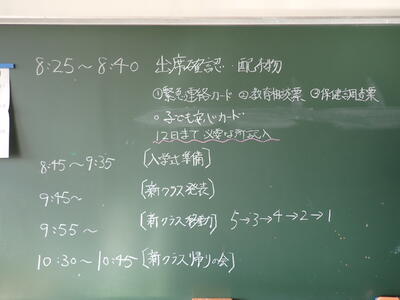 8:25～8:40 出席確認・配布物
①緊急連絡カード ②教育相談票 ③保健調査票
○子ども安心カード
12日まで 必要な所記入
8:45～9:35 〔入学式準備〕
9:45～ 〔新クラス発表〕
9:55～ 〔新クラス移動〕 5→3→4→2→1
10:30～10:45〔新クラス帰りの会〕